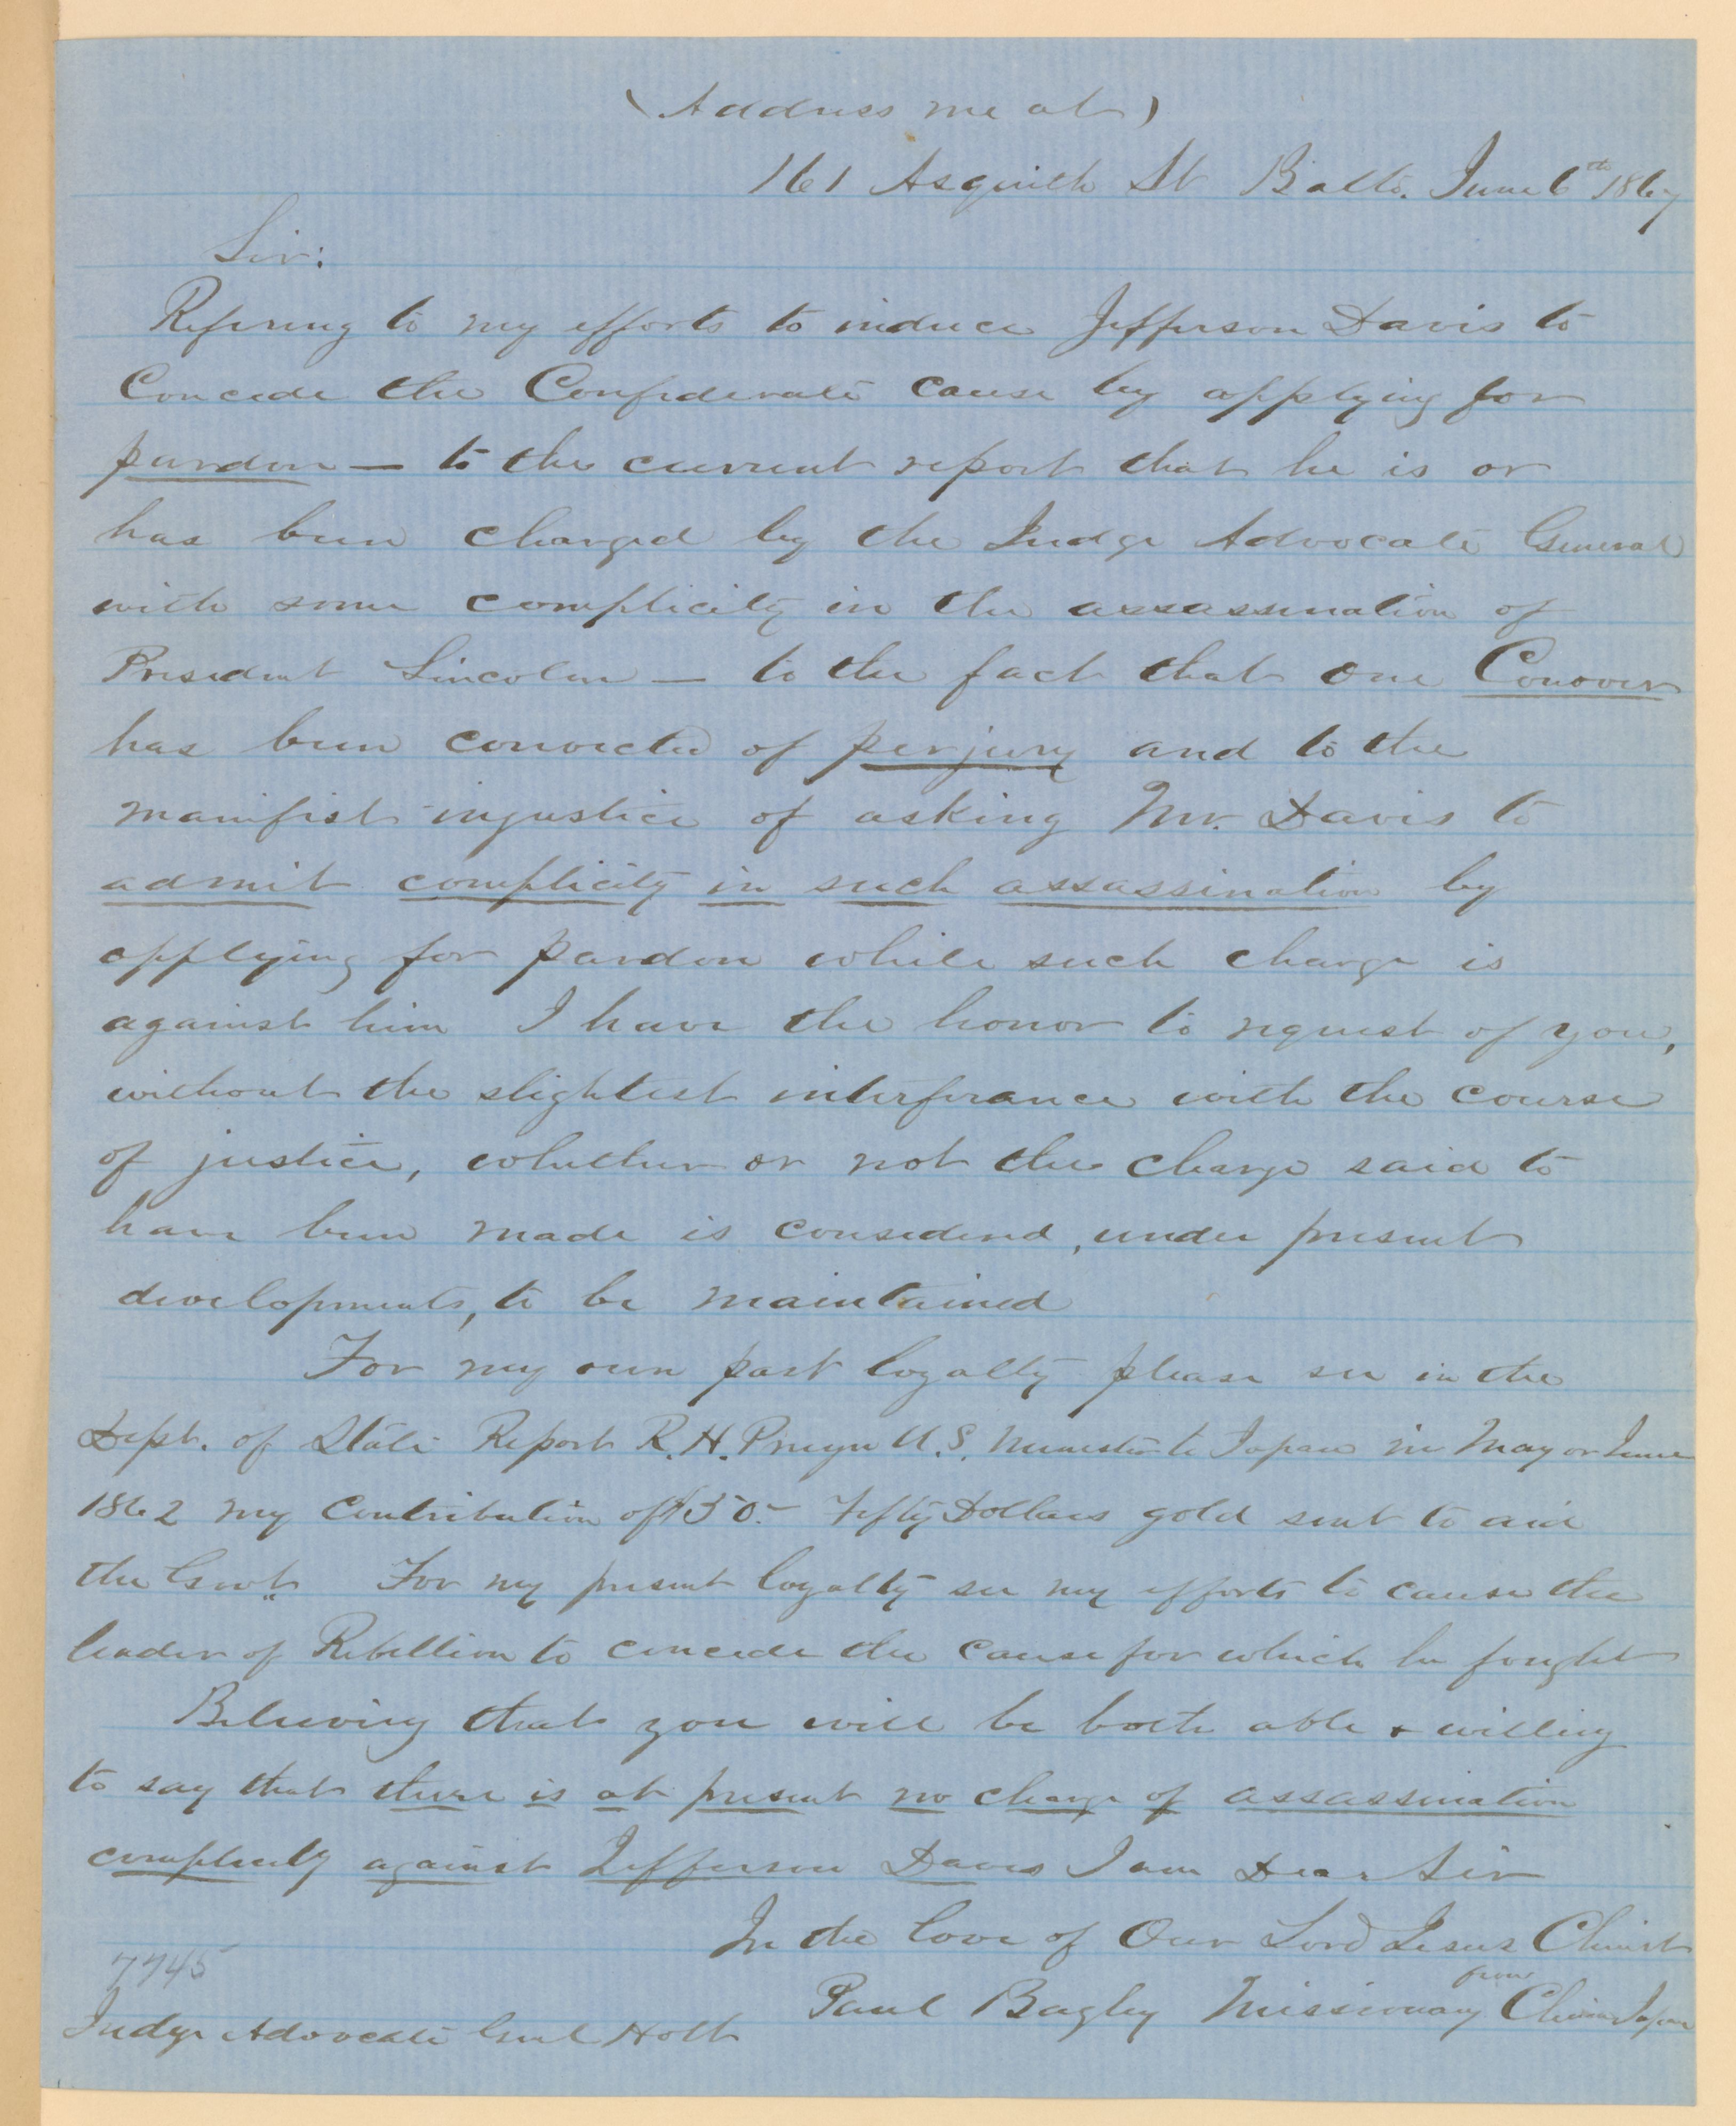 (Address me at)
161 Asquith St Balto. June 6th 1867
Sir:
Refering to my efforts to induce Jefferson Davis to
Concede the Confederate cause by applying for
pardon — to the current report that he is or
has been charged by the Judge Advocate General
with some complicity in the assassination of
President Lincoln — to the fact that one Conover
has been convicted of perjury and to the
manifest injustice of asking Mr. Davis to
admit complicity in such assassination by
applying for pardon while such charge is
against him I have the honor to request of you,
without the slightest interferance with the course
of justice, whether or not the charge said to
have been made is considered, under present
developments, to be maintained
For my own past loyalty please see in the
Dept. of State Report R. H. Pruyn U.S. Minister to Japan in May or June
1862 my Contribution of $50.- Fifty Dollars gold sent to aid
the Govt. For my present loyalty see my efforts to cause the
leader of Rebellion to concede the cause for which he fought
Believing that you will be both able & willing
to say that there is at present no charge of assassination
complicity against Jefferson Davis I am Dear Sir
In the love of Our Lord Jesus Christ
Paul Bagley Missionary from China Japan
7745
Judge Advocate Genl Holt